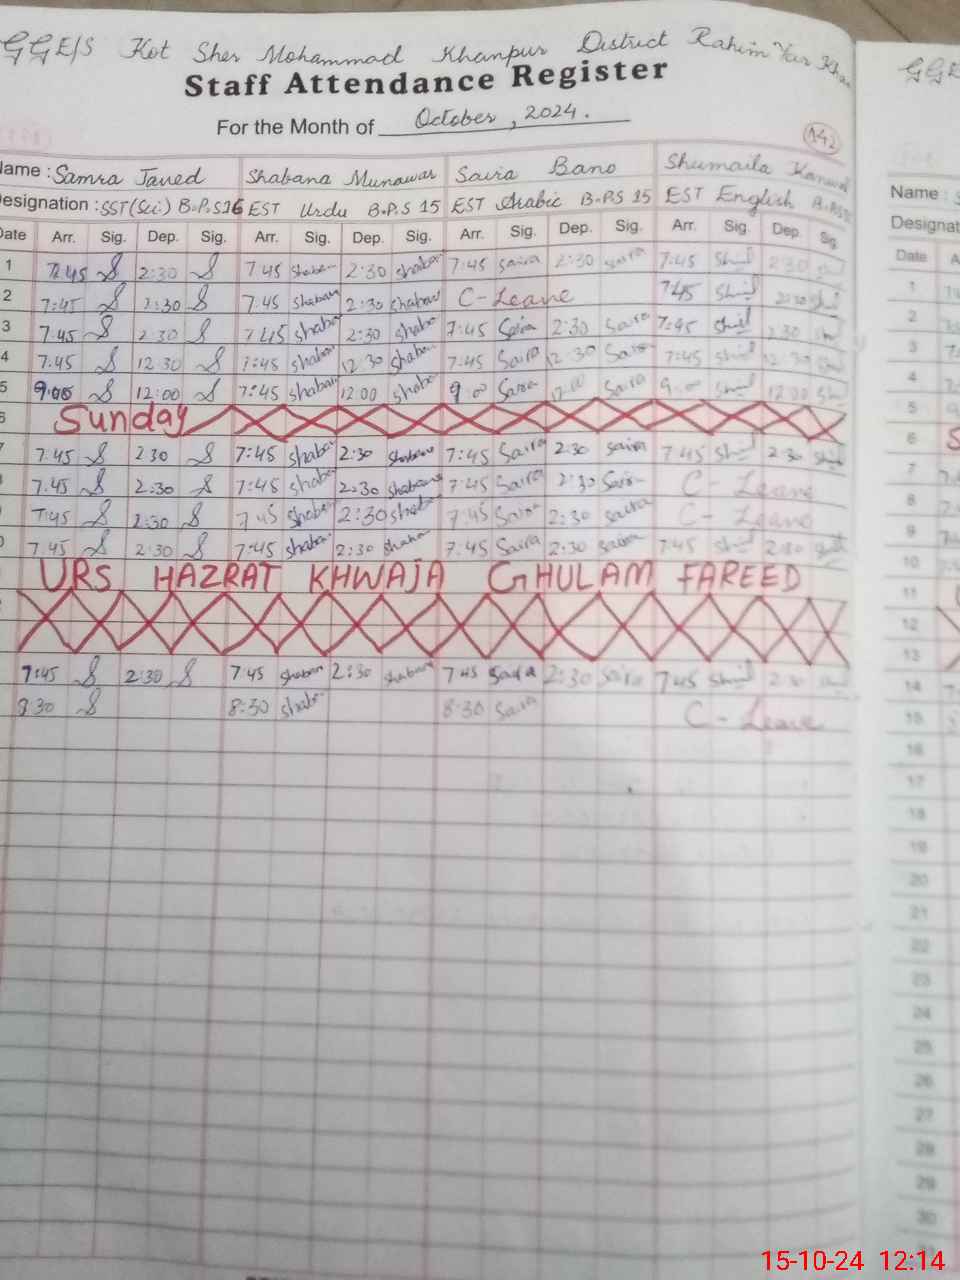 GGE/S Kot Sher Mohammad Khanpur District Rahim Yar Khan
Staff Attendance Register
For the Month of October, 2024.
142
Name : Samra Javed Shabana Munawar Saira Bano Shumaila Kanwal
Designation : SST (Sci) B.P.S 16 EST Urdu B.P.S 15 EST Arabic B.P.S 15 EST English B.P.S 15
Date Arr. Sig. Dep. Sig. Arr. Sig. Dep. Sig. Arr. Sig. Dep. Sig. Arr. Sig. Dep. Sig.
1 7:45 S 2:30 S 7:45 Shaban 2:30 Shaban 7:45 Saira 2:30 Saira 7:45 2:30
2 7:45 S 2:30 S 7:45 Shaban 2:30 Shaban C-Leave 7:45 2:30
3 7.45 S 2:30 S 7:45 Shaban 2:30 Shaban 7:45 Saira 2:30 Saira 7:45 2:30
4 7.45 S 12:30 S 7:45 Shaban 12:30 Shaban 7:45 Saira 12:30 Saira 7:45 12:30
5 9:00 S 12:00 S 7:45 Shaban 12:00 Shaban 9:00 Saira 12:00 Saira 9:00 12:00
6 Sunday
7 7.45 S 2:30 S 7:45 Shaban 2:30 Shaban 7:45 Saira 2:30 Saira 7:45 2:30
7.45 S 2:30 S 7:45 Shaban 2:30 Shaban 7:45 Saira 2:30 Saira C-Leave
7:45 S 2:30 S 7:45 Shaban 2:30 Shaban 7:45 Saira 2:30 Saira C-Leave
7.45 S 2:30 S 7:45 Shaban 2:30 Shaban 7:45 Saira 2:30 Saira 7:45 2:30
URS HAZRAT KHWAJA GHULAM FAREED
7:45 S 2:30 S 7:45 Shaban 2:30 Shaban 7:45 Saira 2:30 Saira 7:45 2:30
8:30 S 8:30 Shaban 8:30 Saira C-Leave
Name :
Designat
Date
1
2
3
4
5
6
7
8
9
10
11
12
13
14
15
16
17
18
19
20
21
22
23
24
25
26
27
28
29
30
15-10-24 12:14